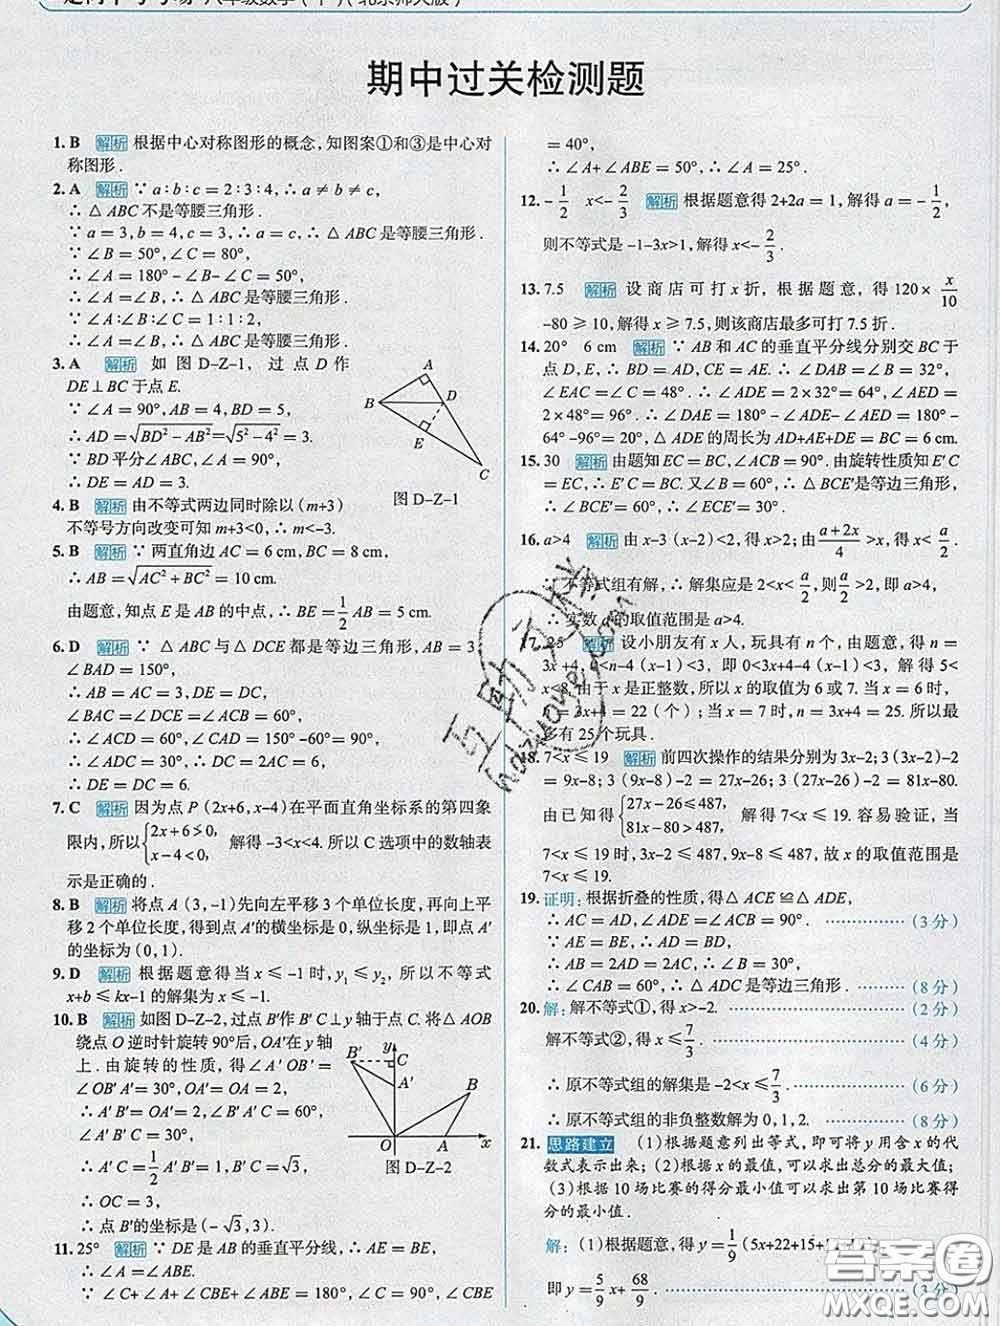 八年级数学(下)(北京师大版)
期中过关检测题
1. B 解析 根据中心对称图形的概念,知图案①和③是中心对
称图形.
2. A 解析 ∵ a∶b∶c=2∶3∶4,∴ a≠b≠c,
∴ △ABC不是等腰三角形.
∵ a=3,b=4,c=3,∴ a=c,∴ △ABC是等腰三角形.
∵ ∠B=50°,∠C=80°,
∴ ∠A=180°-∠B-∠C=50°,
∴ ∠A=∠B,∴ △ABC是等腰三角形.
∵ ∠A∶∠B∶∠C=1∶1∶2,
∴ ∠A=∠B,∴ △ABC是等腰三角形.
3. A 解析 如图D-Z-1,过点D作
DE⊥BC于点E.
∵ ∠A=90°,AB=4,BD=5,
∴ AD=√(BD²-AB²)=√(5²-4²)=3.
∵ BD平分∠ABC,∠A=90°,
∴ DE=AD=3.
A
B
D
E
C
图D-Z-1
4. B 解析 由不等式两边同时除以(m+3)
不等号方向改变可知m+3<0,∴ m<-3.
5. B 解析 ∵ 两直角边AC=6 cm,BC=8 cm,
∴ AB=√(AC²+BC²)=10 cm.
由题意,知点E是AB的中点,∴ BE=1/2 AB=5 cm.
6. D 解析 ∵ △ABC与△DCE都是等边三角形,AB=3,
∠BAD=150°,
∴ AB=AC=3,DE=DC,
∠BAC=∠DCE=∠ACB=60°,
∴ ∠ACD=60°,∠CAD=150°-60°=90°.
∴ ∠ADC=30°,∴ DC=2AC=6.
∴ DE=DC=6.
7. C 解析 因为点P(2x+6,x-4)在平面直角坐标系的第四象
限内,所以{2x+6>0, x-4<0, 解得-3<x<4.所以C选项中的数轴表
示是正确的.
8. B 解析 将点A(3,-1)先向左平移3个单位长度,再向上平
移2个单位长度,得到点A′的横坐标是0,纵坐标是1,即点A′
的坐标为(0,1).
9. D 解析 根据题意得当x≤-1时,y₁≤y₂,所以不等式
x+b≤kx-1的解集为x≤-1.
10. B 解析 如图D-Z-2,过点B′作B′C⊥y轴于点C.将△AOB
绕点O逆时针旋转90°后,OA′在y轴
上.由旋转的性质,得∠A′OB′=
∠OB′A′=30°,OA′=OA=2,
∴ A′B′=OA′=2,∠B′A′C=60°.
∴ ∠A′B′C=30°,
∴ A′C=1/2 A′B′=1,B′C=√3.
∴ OC=3,
∴ 点B′的坐标是(-√3,3).
B′
y
C
A′
B
O
A
x
图D-Z-2
11. 25° 解析 ∵ DE是AB的垂直平分线,∴ AE=BE,
∴ ∠A=∠ABE.
∵ ∠C+∠A+∠CBE+∠ABE=180°,∠C=90°,∠CBE
=40°,
∴ ∠A+∠ABE=50°,∴ ∠A=25°.
12. -1/2 x<-2/3 解析 根据题意得2+2a=1,解得a=-1/2,
则不等式是-1-3x>1,解得x<-2/3.
13. 7.5 解析 设商店可打x折,根据题意,得120×x/10
-80≥10,解得x≥7.5,则该商店最多可打7.5折.
14. 20° 6 cm 解析 ∵ AB和AC的垂直平分线分别交BC于
点D,E,∴ BD=AD,CE=AE.∴ ∠DAB=∠B=32°,
∠EAC=∠C=48°.∴ ∠ADE=2×32°=64°,∠AED=
2×48°=96°.∴ ∠DAE=180°-∠ADE-∠AED=180°-
64°-96°=20°,△ADE的周长为AD+AE+DE=BC=6 cm.
15. 30 解析 由题知EC=BC,∠ACB=90°.由旋转性质知E′C
=EC,∴ E′C=BC.又∠B=60°,∴ △BCE′是等边三角形,
∴ ∠BCE′=60°,∴ ∠ECE′=30°.
16. a>4 解析 由x-3(x-2)<2,得x>2;由(a+2x)/4>x,得x<a/2.
∵ 不等式组有解,∴ 解集应是2<x<a/2,则a/2>2,即a>4,
∴ 实数a的取值范围是a>4.
25 解析 设小朋友有x人,玩具有n个,由题意,得n=
3x+4,0<n-4(x-1)<3,即0<3x+4-4(x-1)<3,解得5<
x<8.由于x是正整数,所以x的取值为6或7.当x=6时,
n=3x+4=22(个);当x=7时,n=3x+4=25.所以最
多有25个玩具.
18. 7<x≤19 解析 前四次操作的结果分别为3x-2;3(3x-2)-2
=9x-8;3(9x-8)-2=27x-26;3(27x-26)-2=81x-80.
由已知得{27x-26≤487, 81x-80>487, 解得7<x≤19.容易验证,当
7<x≤19时,3x-2≤487,9x-8≤487,故x的取值范围是
7<x≤19.
19. 证明:根据折叠的性质,得△ACE≌△ADE,
∴ AC=AD,∠ADE=∠ACB=90°.…………(3分)
∵ AE=BE,∴ AD=BD,
∴ AB=2AD=2AC,∴ ∠B=30°,
∴ ∠CAB=60°,∴ △ADC是等边三角形.…………(8分)
20. 解:解不等式①,得x>-2.…………(2分)
解不等式②,得x≤7/3.…………(4分)
∴ 原不等式组的解集是-2<x≤7/3.…………(6分)
∴ 原不等式组的非负整数解为0,1,2.…………(8分)
21. 思路建立 (1)根据题意列出等式,即可将y用含x的代
数式表示出来;(2)根据x的最值,可以求出总分的最大值;
(3)根据10场比赛的得分最小值可以求出第10场比赛得
分的最小值.
解:(1)根据题意,得y=1/9(5x+22+15+
即y=5/9 x+68/9.…………(3分)
答案圈
MXQE.COM